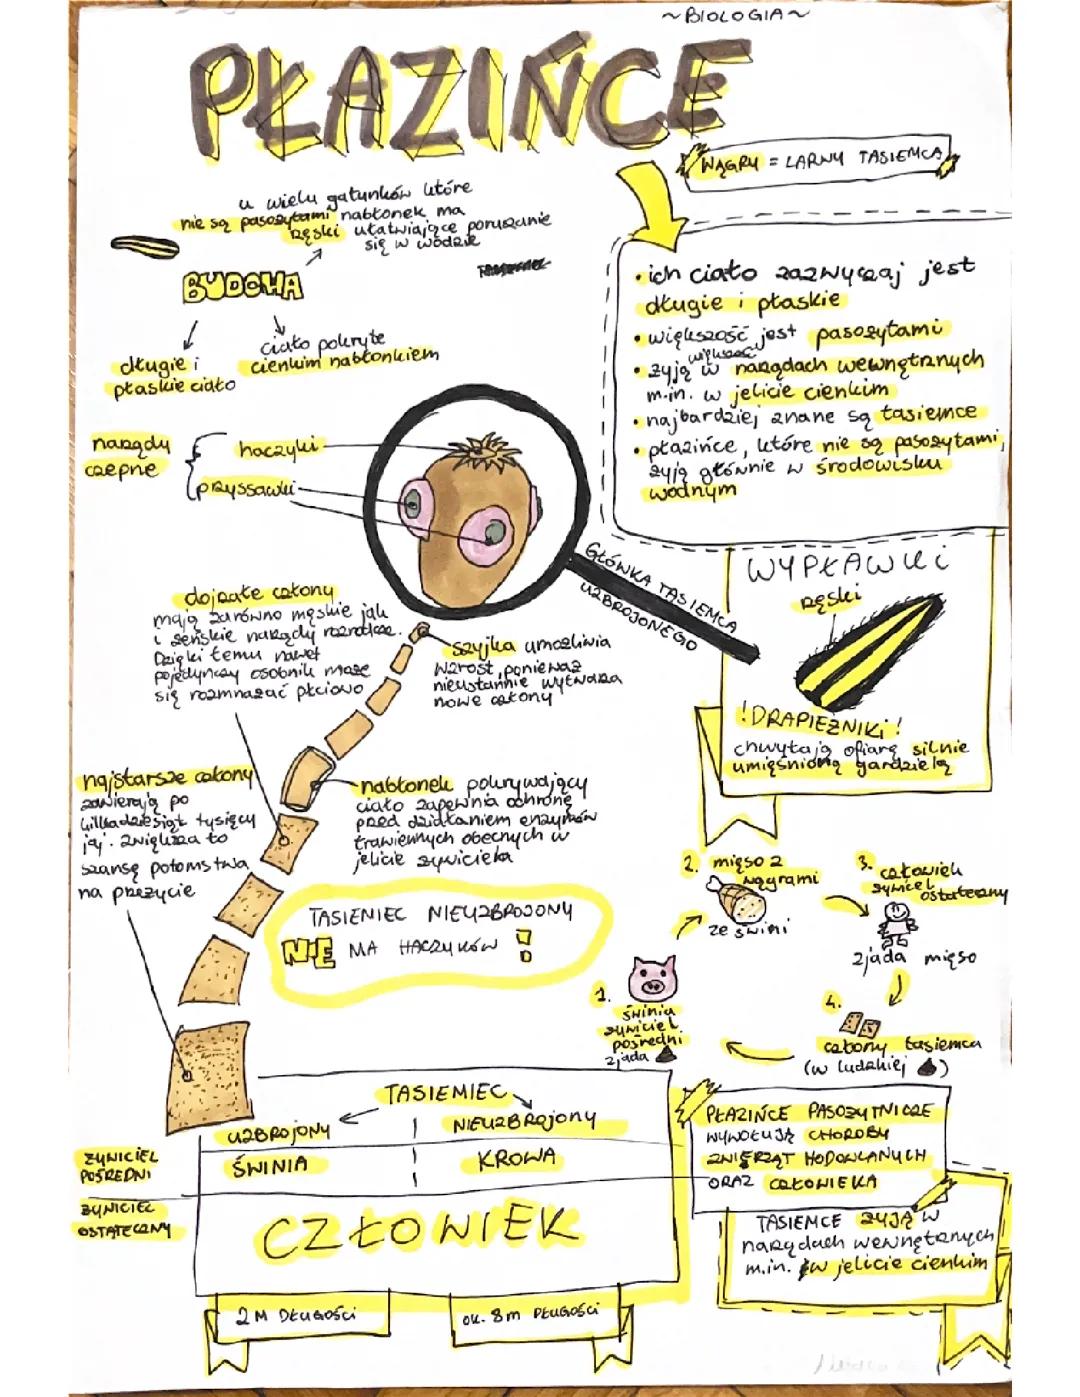 ~BIOLOGIA~
PŁAZIŃCE
WĄGRY = LARWY TASIEMCA
u wielu gatunków które
nie są pasożytami nabłonek ma
rzęski ułatwiające poruszanie
się w wodzie
BUDOWA
długie i
płaskie ciało
ciało pokryte
cienkim nabłonkiem
• ich ciało zazwyczaj jest
długie i płaskie
• większość jest pasożytami
większość
• żyją w narządach wewnętrznych
m.in. w jelicie cienkim
• najbardziej znane są tasiemce
• płazińce, które nie są pasożytami,
żyją głównie w środowisku
wodnym
narządy
czepne
haczyki
przyssawki
GŁÓWKA TASIEMCA
UZBROJONEGO
WYPŁAWKI
rzęski
!DRAPIEŻNIKI!
chwytają ofiarę silnie
umięśnioną gardzielą
dojrzałe człony
mają zarówno męskie jak
i żeńskie narządy rozrodcze.
Dzięki temu nawet
pojedynczy osobnik może
się rozmnażać płciowo
szyjka umożliwia
wzrost, ponieważ
nieustannie wytwarza
nowe człony
najstarsze człony
zawierają po
kilkadziesiąt tysięcy
jaj. Zwiększa to
szansę potomstwa
na przeżycie
nabłonek pokrywający
ciało zapewnia ochronę
przed działaniem enzymów
trawiennych obecnych w
jelicie żywiciela
TASIEMIEC NIEUZBROJONY
NIE MA HACZYKÓW !
1.
świnia
żywiciel
pośredni
zjada
2. mięso z
wągrami
ze świni
3. człowiek
żywiciel
ostateczny
zjada mięso
4.
człony tasiemca
(w ludzkiej )
TASIEMIEC
UZBROJONY
NIEUZBROJONY
ŻYWICIEL
POŚREDNI
ŚWINIA
KROWA
ŻYWICIEL
OSTATECZNY
CZŁOWIEK
2 M DŁUGOŚCI
OK. 8 m DŁUGOŚCI
PŁAZIŃCE PASOŻYTNICZE
WYWOŁUJĄ CHOROBY
ZWIERZĄT HODOWLANYCH
ORAZ CZŁOWIEKA
TASIEMCE ŻYJĄ W
narządach wewnętrznych
m.in. w jelicie cienkim